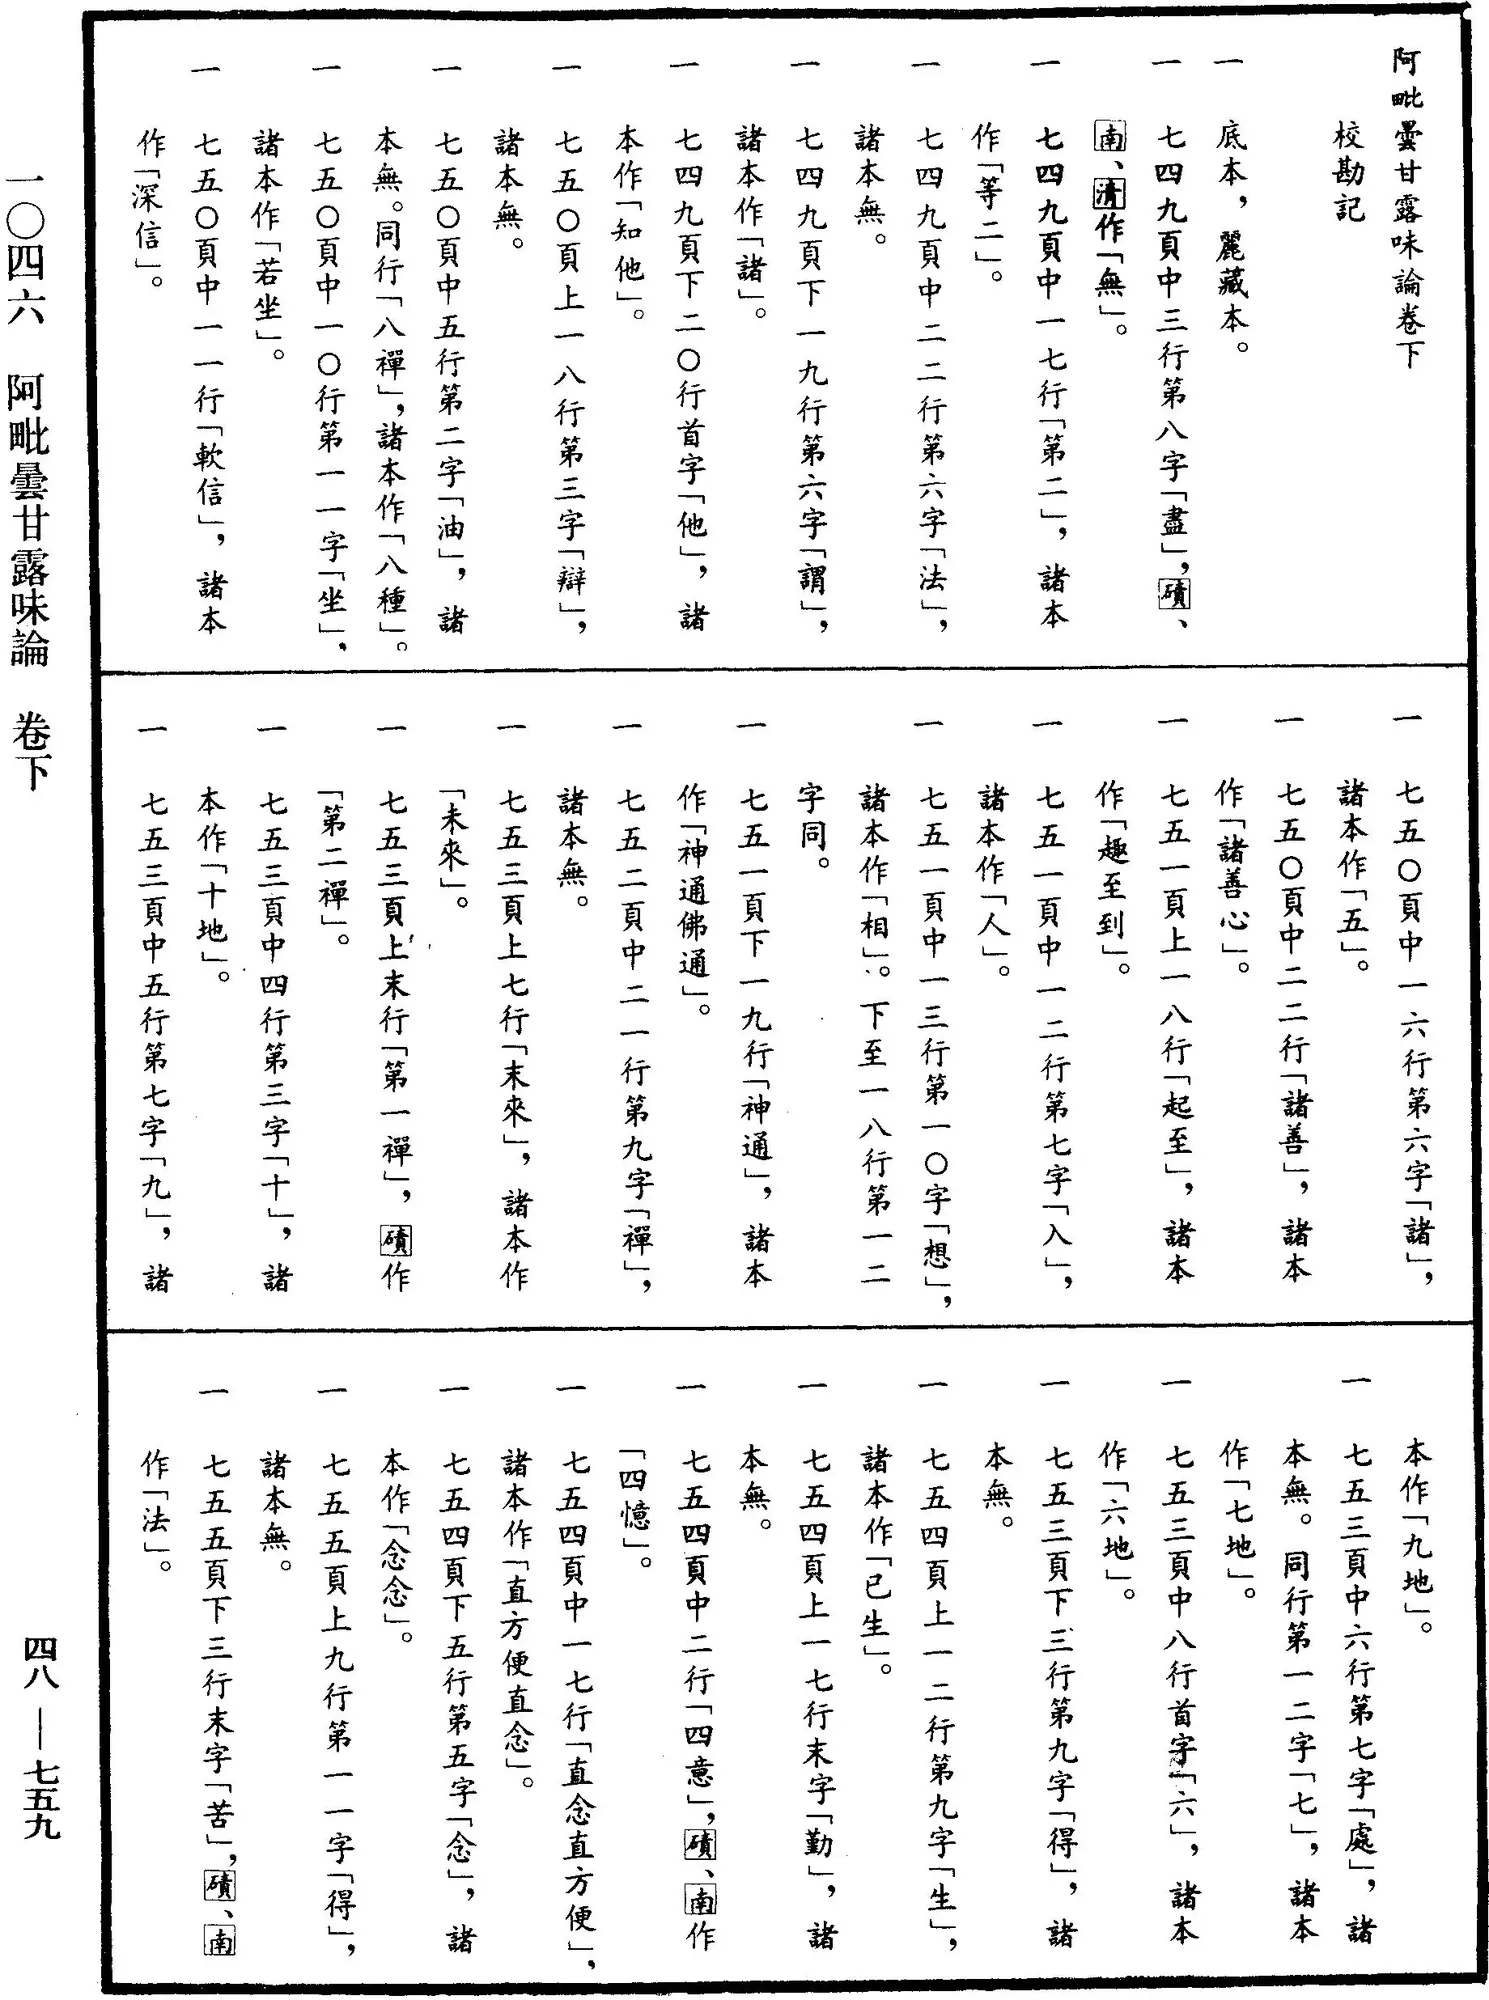 阿毗曇甘露味論卷下
校勘記
一　底本，麗藏本。
一　七四九頁中三行第八字「盡」，磧、
南、清作「無」。
一　七四九頁中一七行「第二」，諸本
作「等二」。
一　七四九頁中二二行第六字「法」，
諸本無。
一　七四九頁下一九行第六字「謂」，
諸本作「諸」。
一　七四九頁下二〇行首字「他」，諸
本作「知他」。
一　七五〇頁上一八行第三字「辯」，
諸本無。
一　七五〇頁中五行第二字「油」，諸
本無。同行「八禪」，諸本作「八種」。
一　七五〇頁中一〇行第一一字「坐」，
諸本作「若坐」。
一　七五〇頁中一一行「軟信」，諸本
作「深信」。
一　七五〇頁中一六行第六字「諸」，
諸本作「五」。
一　七五〇頁中二二行「諸善」，諸本
作「諸善心」。
一　七五一頁上一八行「起至」，諸本
作「趣至到」。
一　七五一頁中一二行第七字「入」，
諸本作「人」。
一　七五一頁中一三行第一〇字「想」，
諸本作「相」。下至一八行第一二
字同。
一　七五一頁下一九行「神通」，諸本
作「神通佛通」。
一　七五二頁中二一行第九字「禪」，
諸本無。
一　七五三頁上七行「末來」，諸本作
「未來」。
一　七五三頁上末行「第一禪」，磧作
「第二禪」。
一　七五三頁中四行第三字「十」，諸
本作「十地」。
一　七五三頁中五行第七字「九」，諸
本作「九地」。
一　七五三頁中六行第七字「處」，諸
本無。同行第一二字「七」，諸本
作「七地」。
一　七五三頁中八行首字「六」，諸本
作「六地」。
一　七五三頁下三行第九字「得」，諸
本無。
一　七五四頁上一二行第九字「生」，
諸本作「已生」。
一　七五四頁上一七行末字「勤」，諸
本無。
一　七五四頁中二行「四意」，磧、南作
「四憶」。
一　七五四頁中一七行「直念直方便」，
諸本作「直方便直念」。
一　七五四頁下五行第五字「念」，諸
本作「念念」。
一　七五五頁上九行第一一字「得」，
諸本無。
一　七五五頁下三行末字「苦」，磧、南
作「法」。
一〇四六　阿毗曇甘露味論　卷下
四八—七五九